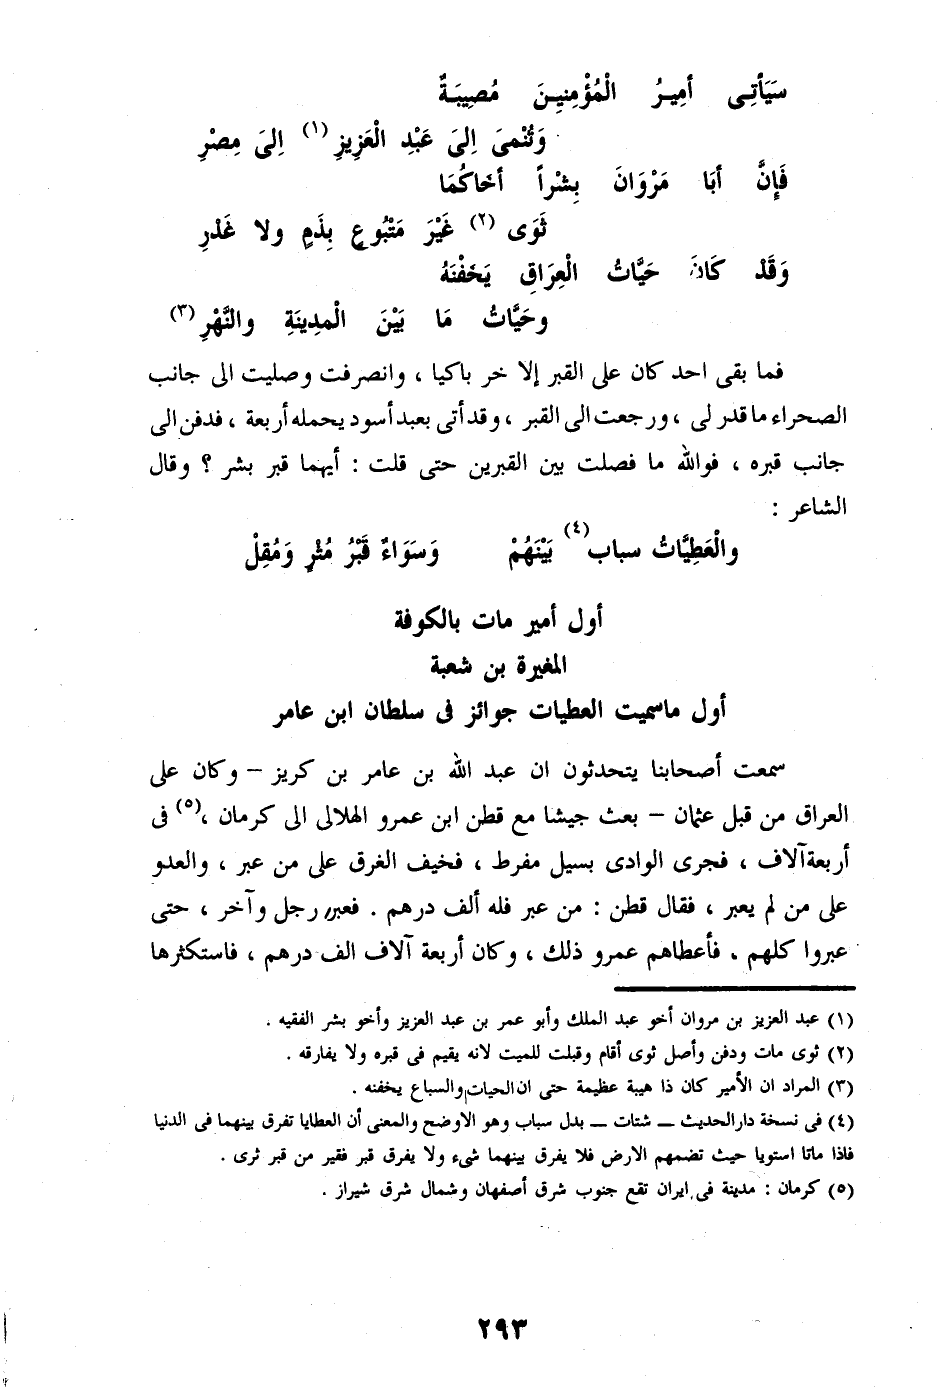 سَيَأتِى أمِيرُ الْمُؤْمِنِينَ مُصِيبَةٌ
وَتُنْمىَ اِلىَ عَبْدِ الْعَزِيزِ (١) اِلىَ مِصْرِ
فَإِنَّ أبَا مَرْوَانَ بِشْراً أخَاكُمَا
ثَوَى (٢) غَيْرَ مَتْبُوعٍ بِذَمٍ ولا غَدْرِ
وَقَدْ كَانَ حَيَّاتُ الْعِرَاقِ يَخَفْنَهُ
وحَيَّاتُ مَا بَيْنَ الْمدِينَةِ والنَّهْرِ (٣)
فما بقى احد كان على القبر إلا خر باكيا ، وانصرفت وصليت الى جانب
الصحراء ما قدر لى ، ورجعت الى القبر ، وقد أتى بعبد أسود يحمله أربعة ، فدفن الى
جانب قبره ، فوالله ما فصلت بين القبرين حتى قلت : أيهما قبر بشر ؟ وقال
الشاعر :
والْعَطِيَّاتُ سباب (٤) بَيْنَهُمْ وَسَوَاءٌ قَبْرُ مُثْرٍ وَمُقِلْ
أول أمير مات بالكوفة
المغيرة بن شعبة
أول ماسميت العطيات جوائز فى سلطان ابن عامر
سمعت أصحابنا يتحدثون ان عبد الله بن عامر بن كريز – وكان على
العراق من قبل عثمان – بعث جيشا مع قطن ابن عمرو الهلالى الى كرمان ،(٥) فى
أربعة آلاف ، فجرى الوادى بسيل مفرط ، فخيف الغرق على من عبر ، والعدو
على من لم يعبر ، فقال قطن : من عبر فله ألف درهم . فعبر رجل وآخر ، حتى
عبروا كلهم . فأعطاهم عمرو ذلك ، وكان أربعة آلاف الف درهم ، فاستكثرها
(١) عبد العزيز بن مروان أخو عبد الملك وأبو عمر بن عبد العزيز وأخو بشر الفقيه .
(٢) ثوى مات ودفن وأصل ثوى أقام وقبلت للميت لانه يقيم فى قبره ولا يفارقه .
(٣) المراد ان الأمير كان ذا هيبة عظيمة حتى ان الحيات والسباع يخفنه .
(٤) فى نسخة دارالحديث – شتات – بدل سباب وهو الاوضح والمعنى أن العطايا تفرق بينهما فى الدنيا
فاذا ماتا استويا حيث تضمهم الارض فلا يفرق بينهما شىء ولا يفرق قبر فقير من قبر ثرى .
(٥) كرمان : مدينة فى ايران تقع جنوب شرق أصفهان وشمال شرق شيراز .
٢٩٣